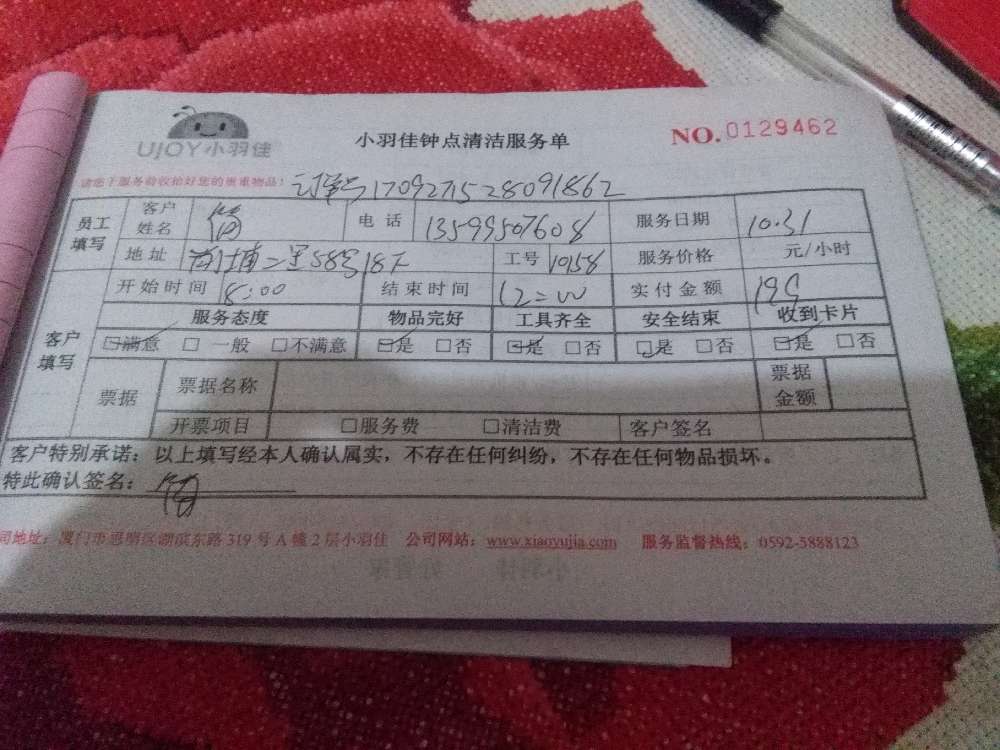 UJOY小羽佳
小羽佳钟点清洁服务单
NO.0129462
请您于服务前收拾好您的贵重物品！
订单号1709271528091862
员工填写 客户姓名 电话 13599507608 服务日期 10.31
地址 二里58号18下 工号 10158 服务价格 元/小时
开始时间 8:00 结束时间 12:00 实付金额 199
客户填写 服务态度 物品完好 工具齐全 安全结束 收到卡片
☑满意 □一般 □不满意 ☑是 □否 ☑是 □否 ☑是 □否 ☑是 □否
票据 票据名称 票据金额
开票项目 □服务费 □清洁费 客户签名
客户特别承诺：以上填写经本人确认属实，不存在任何纠纷，不存在任何物品损坏。
特此确认签名：
司地址：厦门市思明区湖滨东路319号A幢2层小羽佳 公司网站：www.xiaoyujia.com 服务监督热线：0592-5888123